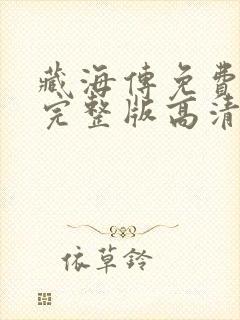 藏海傳免費
完整版高清
依草鈴